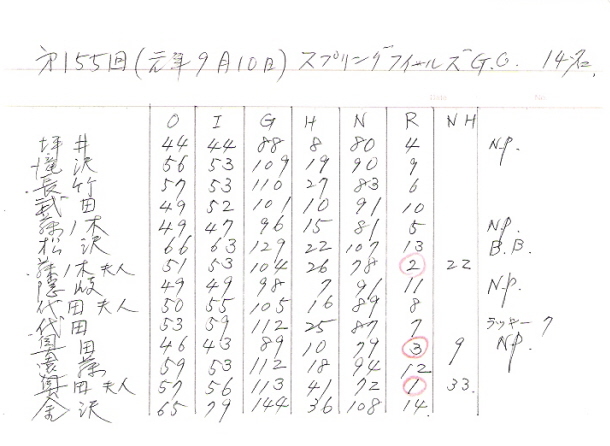 第155回(元年9月10日) スプリングフィールズG.C. 14名
O I G H N R NH
坪井 44 44 88 8 80 4 N.P.
滝沢 56 53 109 19 90 9
長竹 57 53 110 27 83 6
武田 49 52 101 10 91 10
木 49 47 96 15 81 5 N.P.
松沢 66 63 129 22 107 13 B.B.
木夫人 51 53 104 26 78 2 22
隠岐 49 49 98 7 91 11 N.P.
代田夫人 50 55 105 16 89 8
代田 53 59 112 25 87 7 ラッキー7
田 46 43 89 10 79 3 9 N.P.
59 53 112 18 94 12
田夫人 57 56 113 41 72 1 33
金沢 65 79 144 36 108 14